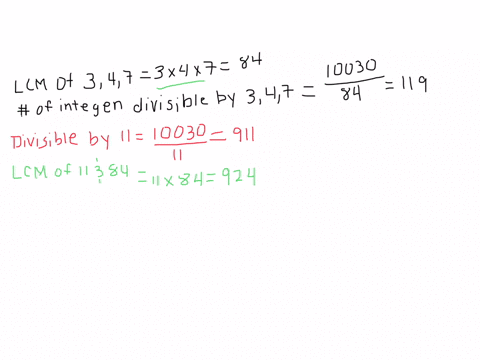 LCM Of 3,4,7 = 3×4×7 = 84
# of integen divisible by 3,4,7 = 10030/84 = 119
Divisible by 11 = 10030/11 = 911
LCM of 11 & 84 = 11 × 84 = 924